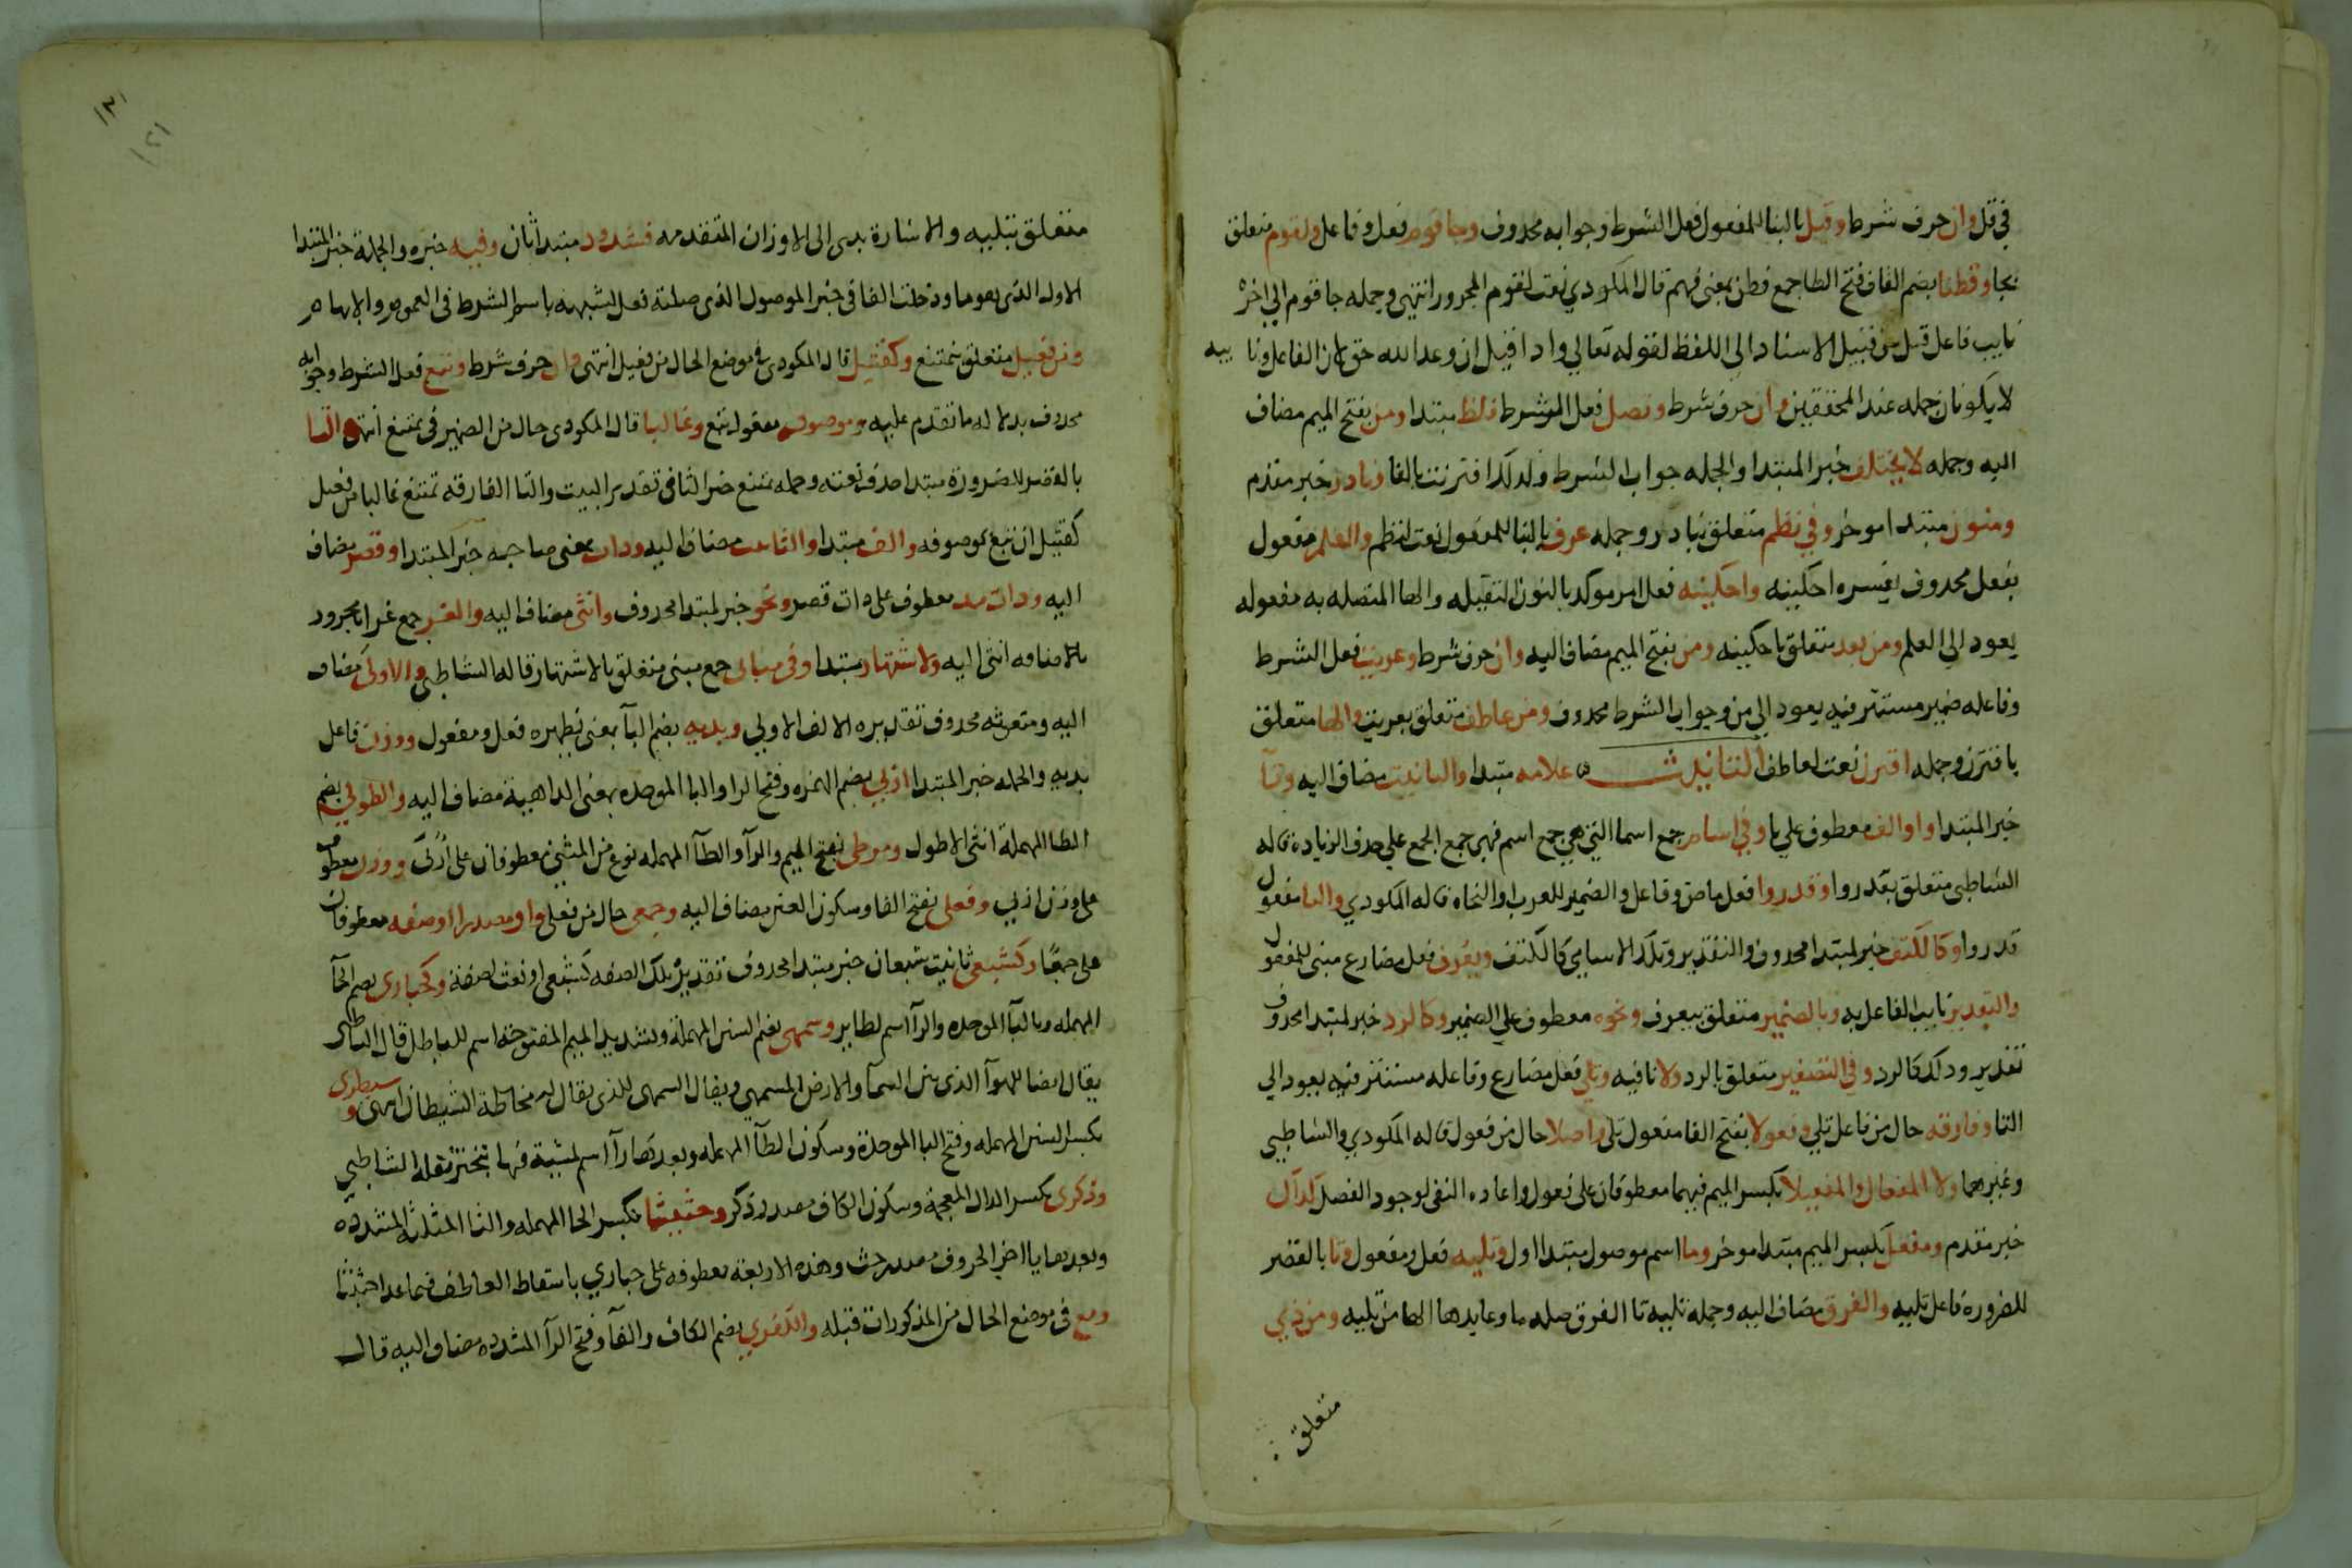 في قل وان حرف شرط وقيل بالبنا للمفعول فعل الشرط وجوابه محدوف وجا قوم فعل وفاعل ولقوم متعلق
بجا وفطنا بضم الفا وفتح الطا جمع فطن بمعنى فهم قال المكودي نعت لقوم المجرور انتهى وجمله جا قوم الي اخره
نايب فاعل قيل من قبيل الاسناد الى اللفظ لقوله تعالي واذا قيل ان وعد الله حق لان الفاعل ونا يبه
لا يكونان جمله عند المحققين وان حرف شرط وتصل فعل الشرط فلفظ مبتدا ومن بفتح الميم مضاف
اليه وجمله لا يختلف خبر المبتدا والجمله جواب الشرط ولدلك اقترنت بالفا ونادر خبر مقدم
ومنون مبتدا موخر وفي نظم متعلق بنادر وجمله عرف بالبنا للمفعول نعت لنظم والعلم مفعول
بفعل محدوف يفسره احكينه واحكينه فعل امر موكد بالنون الثقيله والها المتصله به مفعوله
يعود الي العلم ومن بعد متعلق باحكينه ومن بفتح الميم مضاف اليه وان حرف شرط وعريت فعل الشرط
وفاعله ضمير مستتر فيه يعود الي من وجواب الشرط محدوف ومن عاطف متعلق بعريت والها متعلق
باقترن وجمله اقترن نعت لعاطف التانيث ش علامه مبتدا والتانيث مضاف اليه وتا
خبر المبتدا واو الف معطوف علي تا وفي اسام جمع اسما التي هي جمع اسم فهى جمع الجمع علي حدف الزياده قاله
الشاطبي متعلق بقدروا وقدروا فعل ماض وفاعل والضمير للعرب والنحاه قاله المكودي والتا مفعول
قدروا وكالكتف خبر لمبتدا محدوف والتقدير وتلك الاسامي كالكتف ويعرف فعل مضارع مبنى للمفعول
والتقدير نايب الفاعل به وبالضمير متعلق بيعرف ونحوه معطوف علي الضمير وكالرد خبر لمبتدا محدوف
تقديره ودلك كالرد وفي التصغير متعلق بالرد ولا نافيه وتلي فعل مضارع وفاعله مستتر فيه يعود الي
التا وفارقه حال من فاعل تلي وفعولا بفتح الفا مفعول تلي واصلا حال من فعول قاله المكودي والشاطبي
وغيرهما ولا المفعال والمفعيلا بكسر الميم فيهما معطوفان على فعول واعاده النفى لوجود الفصل كداك
خبر مقدم ومفعل بكسر الميم مبتدا موخر وما اسم موصول مبتدا اول وتليه فعل ومفعول وتا بالقصر
للضرورة فاعل تليه والفرق مضاف اليه وجملة تليه تا الفرق صله ما وعايدها الها من تليه ومن ذي
متعلق
١٢١
١٢١
متعلق بتليه والاشارة بدى الى الاوزان المتقدمه فشدود مبتدا ثان وفيه خبره والجملة خبر المبتدا
الاول الذى هو ما ودخلت الفا في خبر الموصول الذى صلته فعل لشبهه باسم الشرط فى العموم والابهام
ومن فعيل متعلق بتمتنع وكقتيل قال المكودى في موضع الحال من فعيل انتهى وان حرف شرط وتبع فعل الشرط وجوابه
محدوف بدلالة ما تقدم عليه وموصوفه مفعول تبع وغالبا قال المكودى حال من الضمير فى تمتنع انتهى والتا
بالقصر للضرورة مبتدا حدف نعته وجمله تمتنع خبر التا فى تقدير البيت والتا الفارقه تمتنع غالبا من فعيل
كقتيل ان تبع موصوفه والف مبتدا والتانيث مضاف اليه وذات بمعنى صاحبه خبر المبتدا وقصر مضاف
اليه وذات مد معطوف على ذات قصر ونحو خبر لمبتدا محدوف وانثى مضاف اليه والغر جمع غرا مجرور
بالاضافه انثى اليه والاشتهار مبتدا وفي مبانى جمع مبنى متعلق بالاشتهار قاله الشاطبي والاولى مضاف
اليه ومنعوته محدوف تقديره الالف الاولي ويبديه بضم اليآ بمعنى يظهره فعل ومفعول ووزن فاعل
يبديه والجمله خبر المبتدا اربي بضم الهمزه وفتح الرا والبا الموحده بمعنى الداهية مضاف اليه والطولي بضم
الطا المهملة انثى الاطول ومرطى بفتح الميم والرآ والطآ المهمله نوع من المشى معطوفان على اربي ووزن معطوف
على وزن اربي وفعلى بفتح الفا وسكون العين مضاف اليه وجمعا حال من فعلى واو مصدرا او صفه معطوفان
على جمعًا وكشبعى ثانيت شبعان خبر مبتدا محدوف تقديره تلك الصفه كشبعى او نعت لصفة وكحبارى بضم الحآ
المهمله وبالبآ الموحده والرآ اسم لطاير وسمهى بضم السين المهملة وتشديد الميم المفتوحة اسم للباطل قال الشاطبى
يقال ايضا للهوآ الذى بين السمآ والارض السمهى ويقال السمهى للذى يقال له مخاطة الشيطان انتهى وسبطرى
بكسر السين المهمله وفتح البا الموحدة وسكون الطآ المهمله وبعدها رآ اسم لمشية فيها تبختر نقله الشاطبي
وذكرى بكسر الدال المعجمة وسكون الكاف مصدر ذكر وحثيثا بكسر الحا المهمله والثا المثلثه المشدده
وبعدها يا اخر الحروف مصدر حث وهذه الاربعة معطوفه على حباري باسقاط العاطف فيما عدا حثيثا
ومع فى موضع الحال من المذكورات قبله والكفري بضم الكاف والفآ وفتح الرآ المشدده مضاف اليه قال